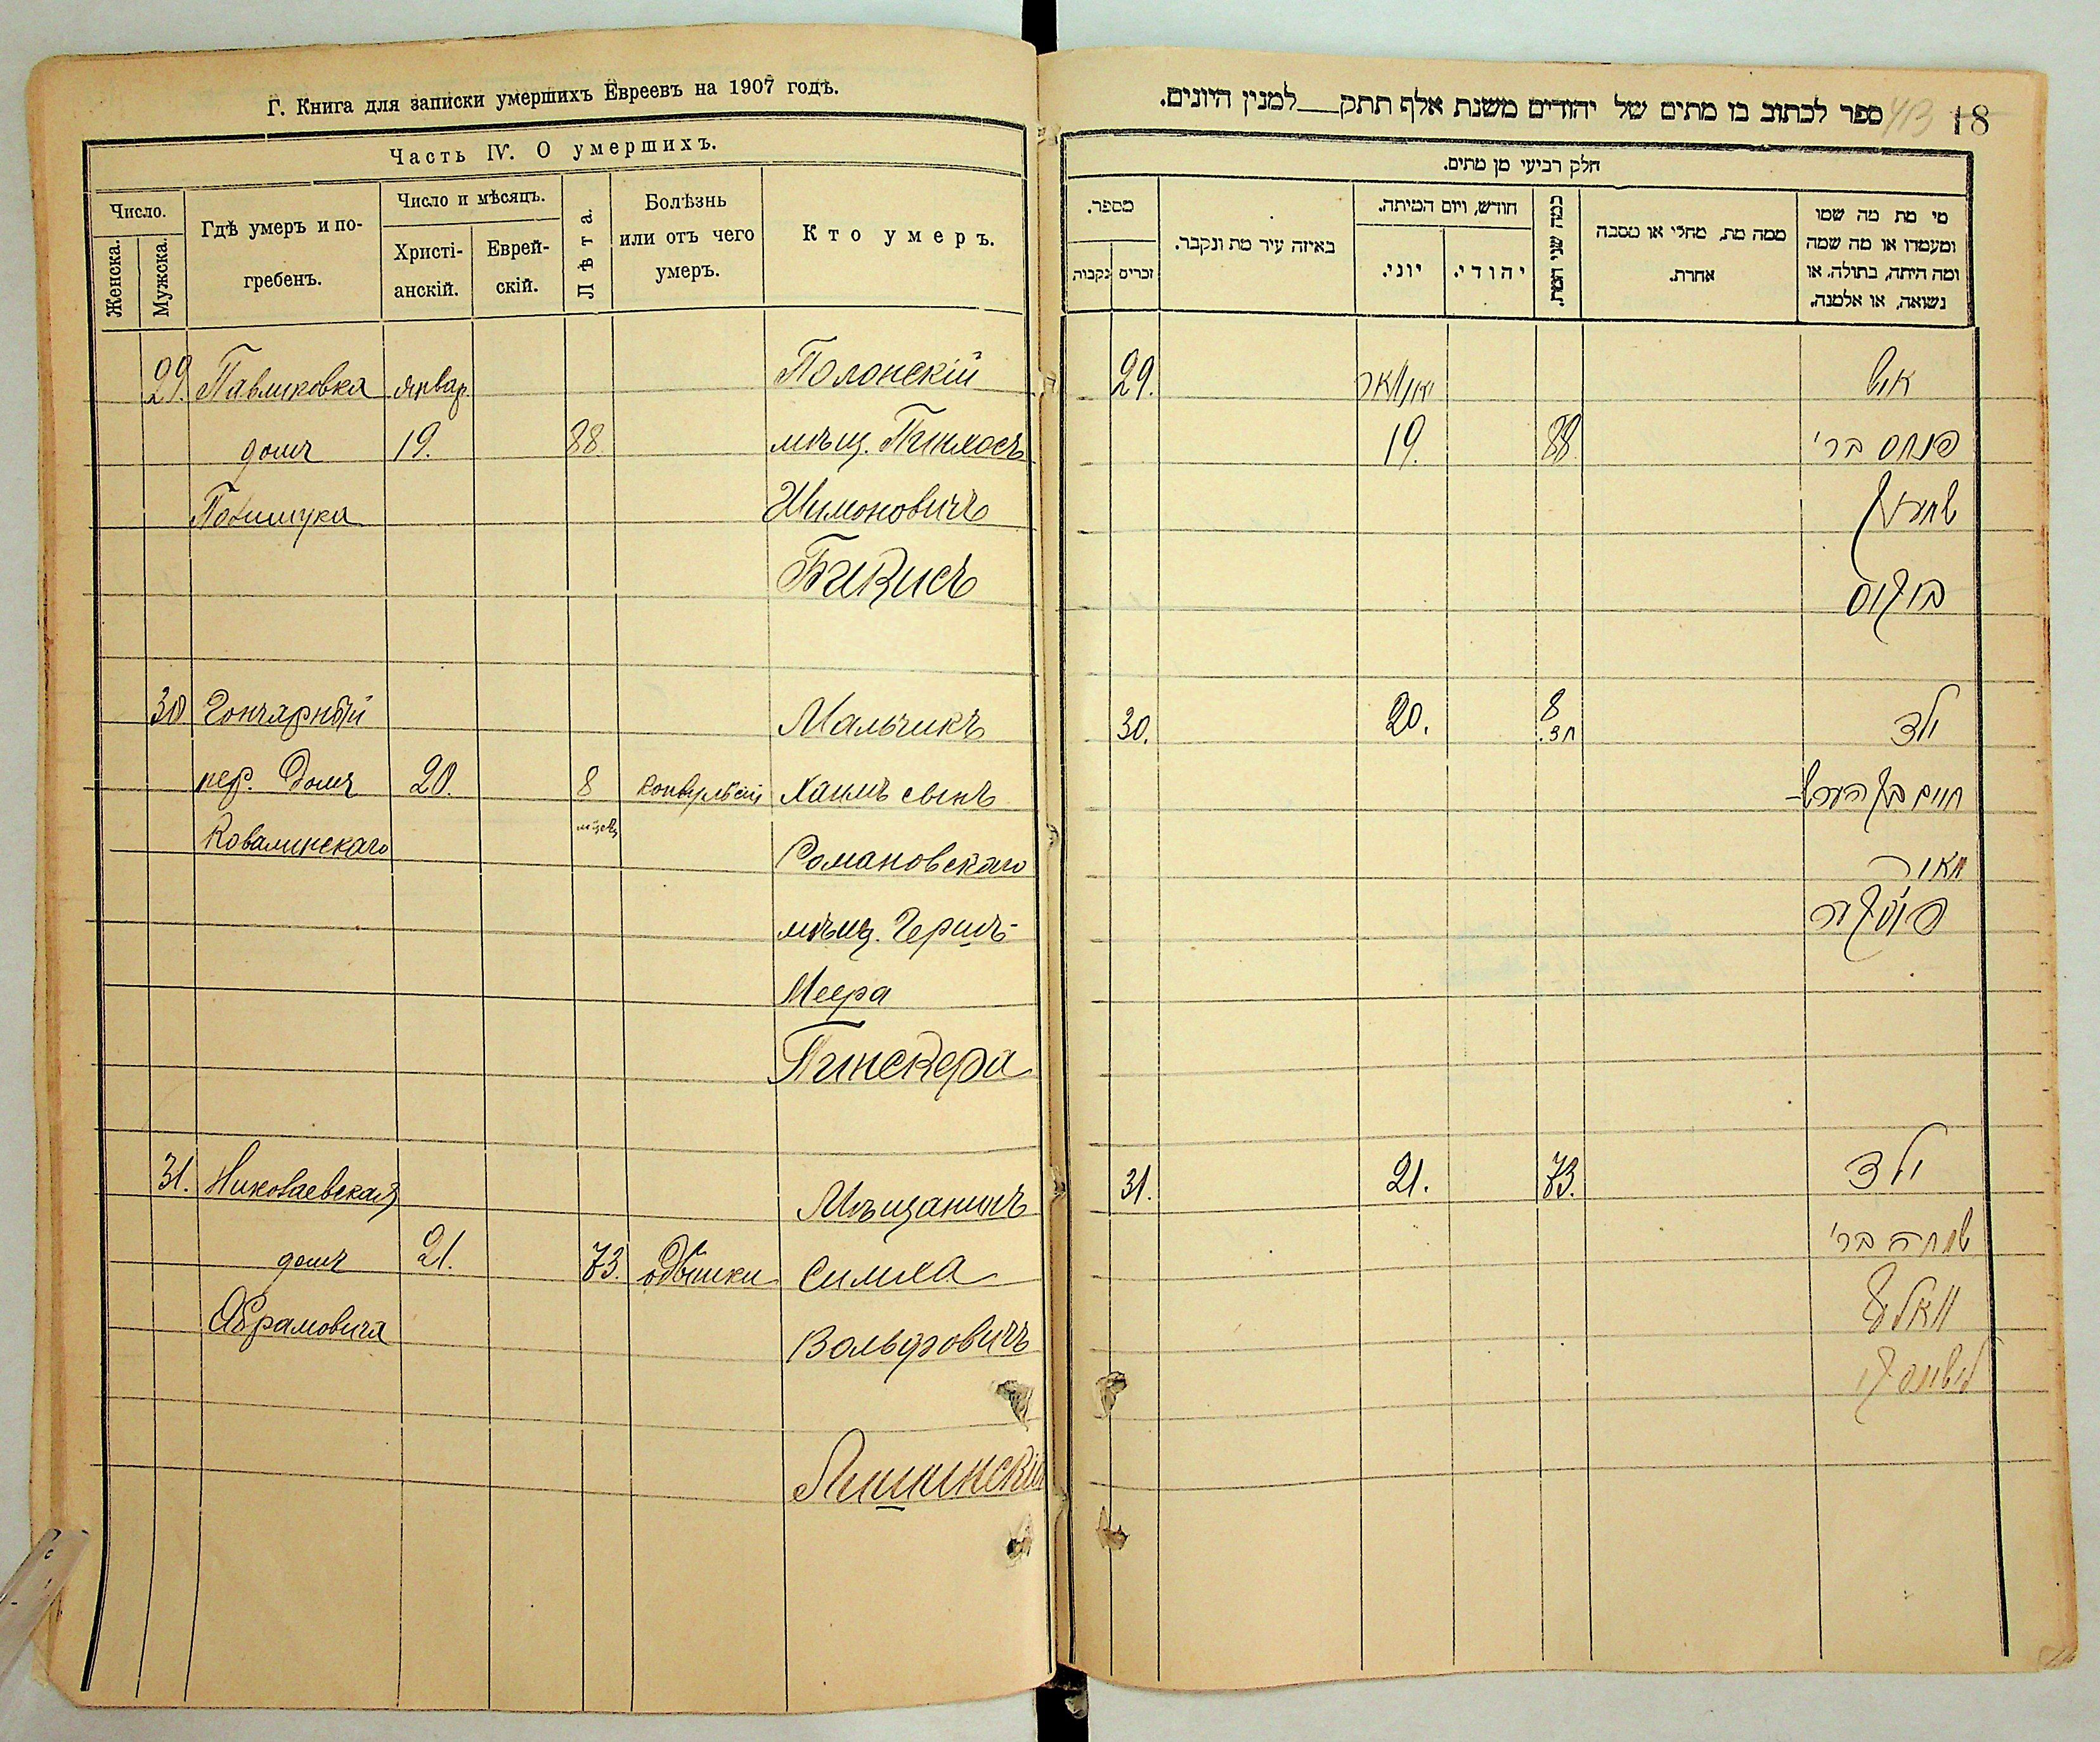 Г. Книга для записки умершихъ Евреевъ на 1907 годъ.
Часть IV. О умершихъ.
Число.
Женска.
Мужска.
Гдѣ умеръ и по-
гребенъ.
Число и мѣсяцъ.
Христі-
анскій.
Еврей-
скій.
Лѣта.
Болѣзнь
или отъ чего
умеръ.
Кто умеръ.
29. Павликовка январ. Полонскій
домъ 19. 88. мѣщ. Пинхосъ
Шимоновичъ
Бикисъ
30 Гончарный Мальчикъ
пер. Домъ 20. 8 Хаимъ сынъ
Ковалинскаго Романовскаго
мѣщ. Герш-
Меера
Пинскера
31. Николаевская Мѣщанинъ
домъ 21. 73. одышки Симха
Абрамовича Вольфовичъ
Лишинскій
18
413
ספר לכתוב בו מתים של יהודים משנת אלף תתק__למנין היונים.
חלק רביעי מן מתים.
מספר.
זכרים
נקבות
באיזה עיר מת ונקבר.
חודש, ויום המיתה.
יוני.
יהודי.
כמה שני המת.
ממה מת, מחלי או מסבה
אחרת.
מי מת מה שמו
ומעמדו או מה שמה
ומה היתה, בתולה, או
נשואה, או אלמנה.
29. יאנואר איש
19. 88 פנחס בר'
שימעון
ביקיס
30. 20. 8 ילד
חד. חיים בן הערש-
מאיר
פינסקער
31. 21. 73. ילד
שמחה בר'
וואלף
לישינסקי